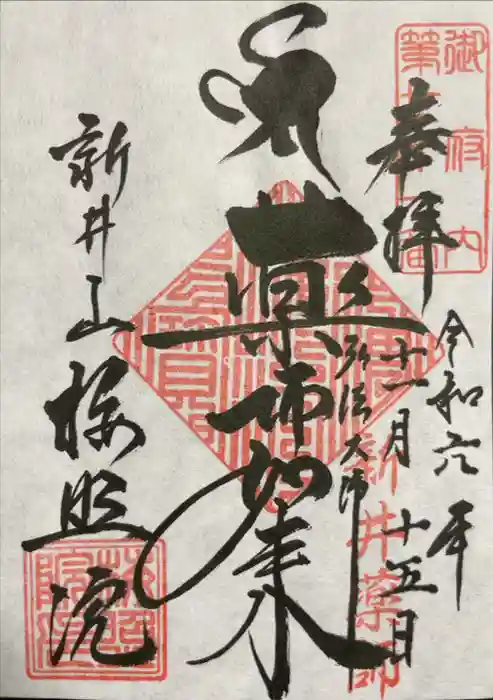 奉拝
令和六年
十一月十五日
弘法大師
薬師如来
新井山梅照院
御府内
新井薬師
梅照院